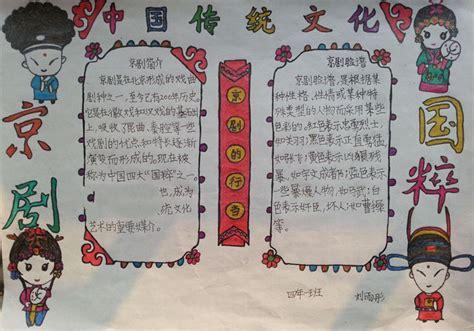 中国传统文化
京剧
国粹
京剧简介
京剧是在北京形成的戏曲
剧种之一,至今已有200年历史。
它是在徽戏和汉戏的基础
上,吸收了昆曲、秦腔等一些
戏剧的优点和特长逐渐
演变而形成的。现在被
称为中国四大"国粹"之一。
也,成为
统文化
艺术的重要媒介。
京剧的行当
京剧脸谱
京剧脸谱,是根据某
种性格、性情或某种特
殊类型的人物而采用某些
色彩的。红色表示忠勇烈士,
如关羽;黑色表示正直勇猛,
如张飞;黄色表示 残
暴,如宇文成都;蓝色表示
一些 人物,如马武;白
色表示奸臣、坏人如曹操
等。
四年一班
刘雨彤